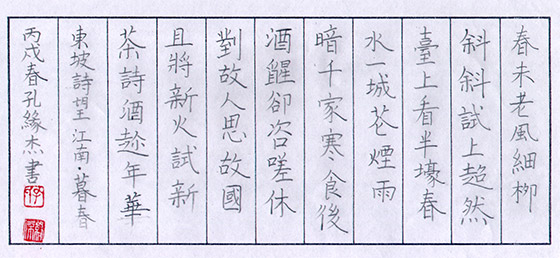 春未老風細柳
斜斜試上超然
臺上看半壕春
水一城花煙雨
暗千家寒食後
酒醒卻咨嗟休
對故人思故國
且將新火試新
茶詩酒趁年華
東坡詩望江南·暮春
丙戌春孔緣杰書